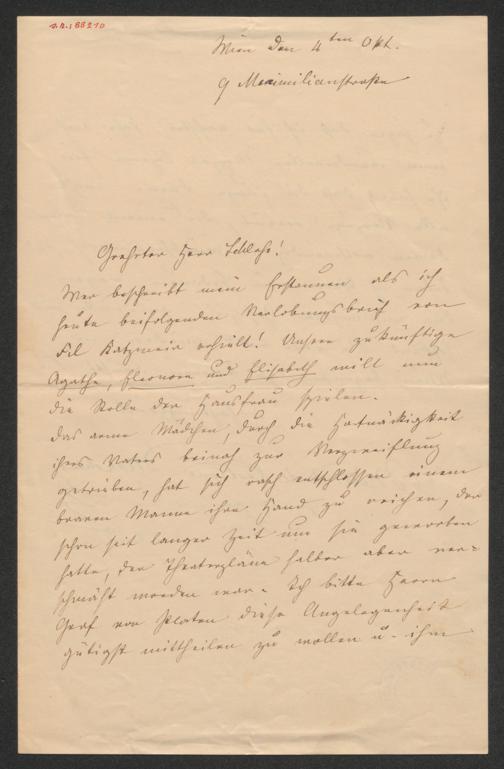 I.N. 88210
Wien den 4ten Okt.
9 Maximilianstraße
Geehrter Herr Schlosser!
Wer beschreibt mein Erstaunen als ich
heute beifolgenden Verlobungsbrief von
Frl Katzmair erhielt! Unsere zukünftige
Agathe, Eleonore und Elisabeth will nun
die Rolle der Hausfrau spielen.
Das arme Mädchen, durch die Hartnäckigkeit
ihres Vaters beinah zur Verzweiflung
getrieben, hat sich rasch entschlossen einem
braven Manne ihre Hand zu reichen, der
schon seit langer Zeit um sie geworben
hatte, der Theaterpläne halber aber ver=
schmäht worden war. Ich bitte Herrn
Graf von Platen diese Angelegenheit
gütigst mittheilen zu wollen u. ihm